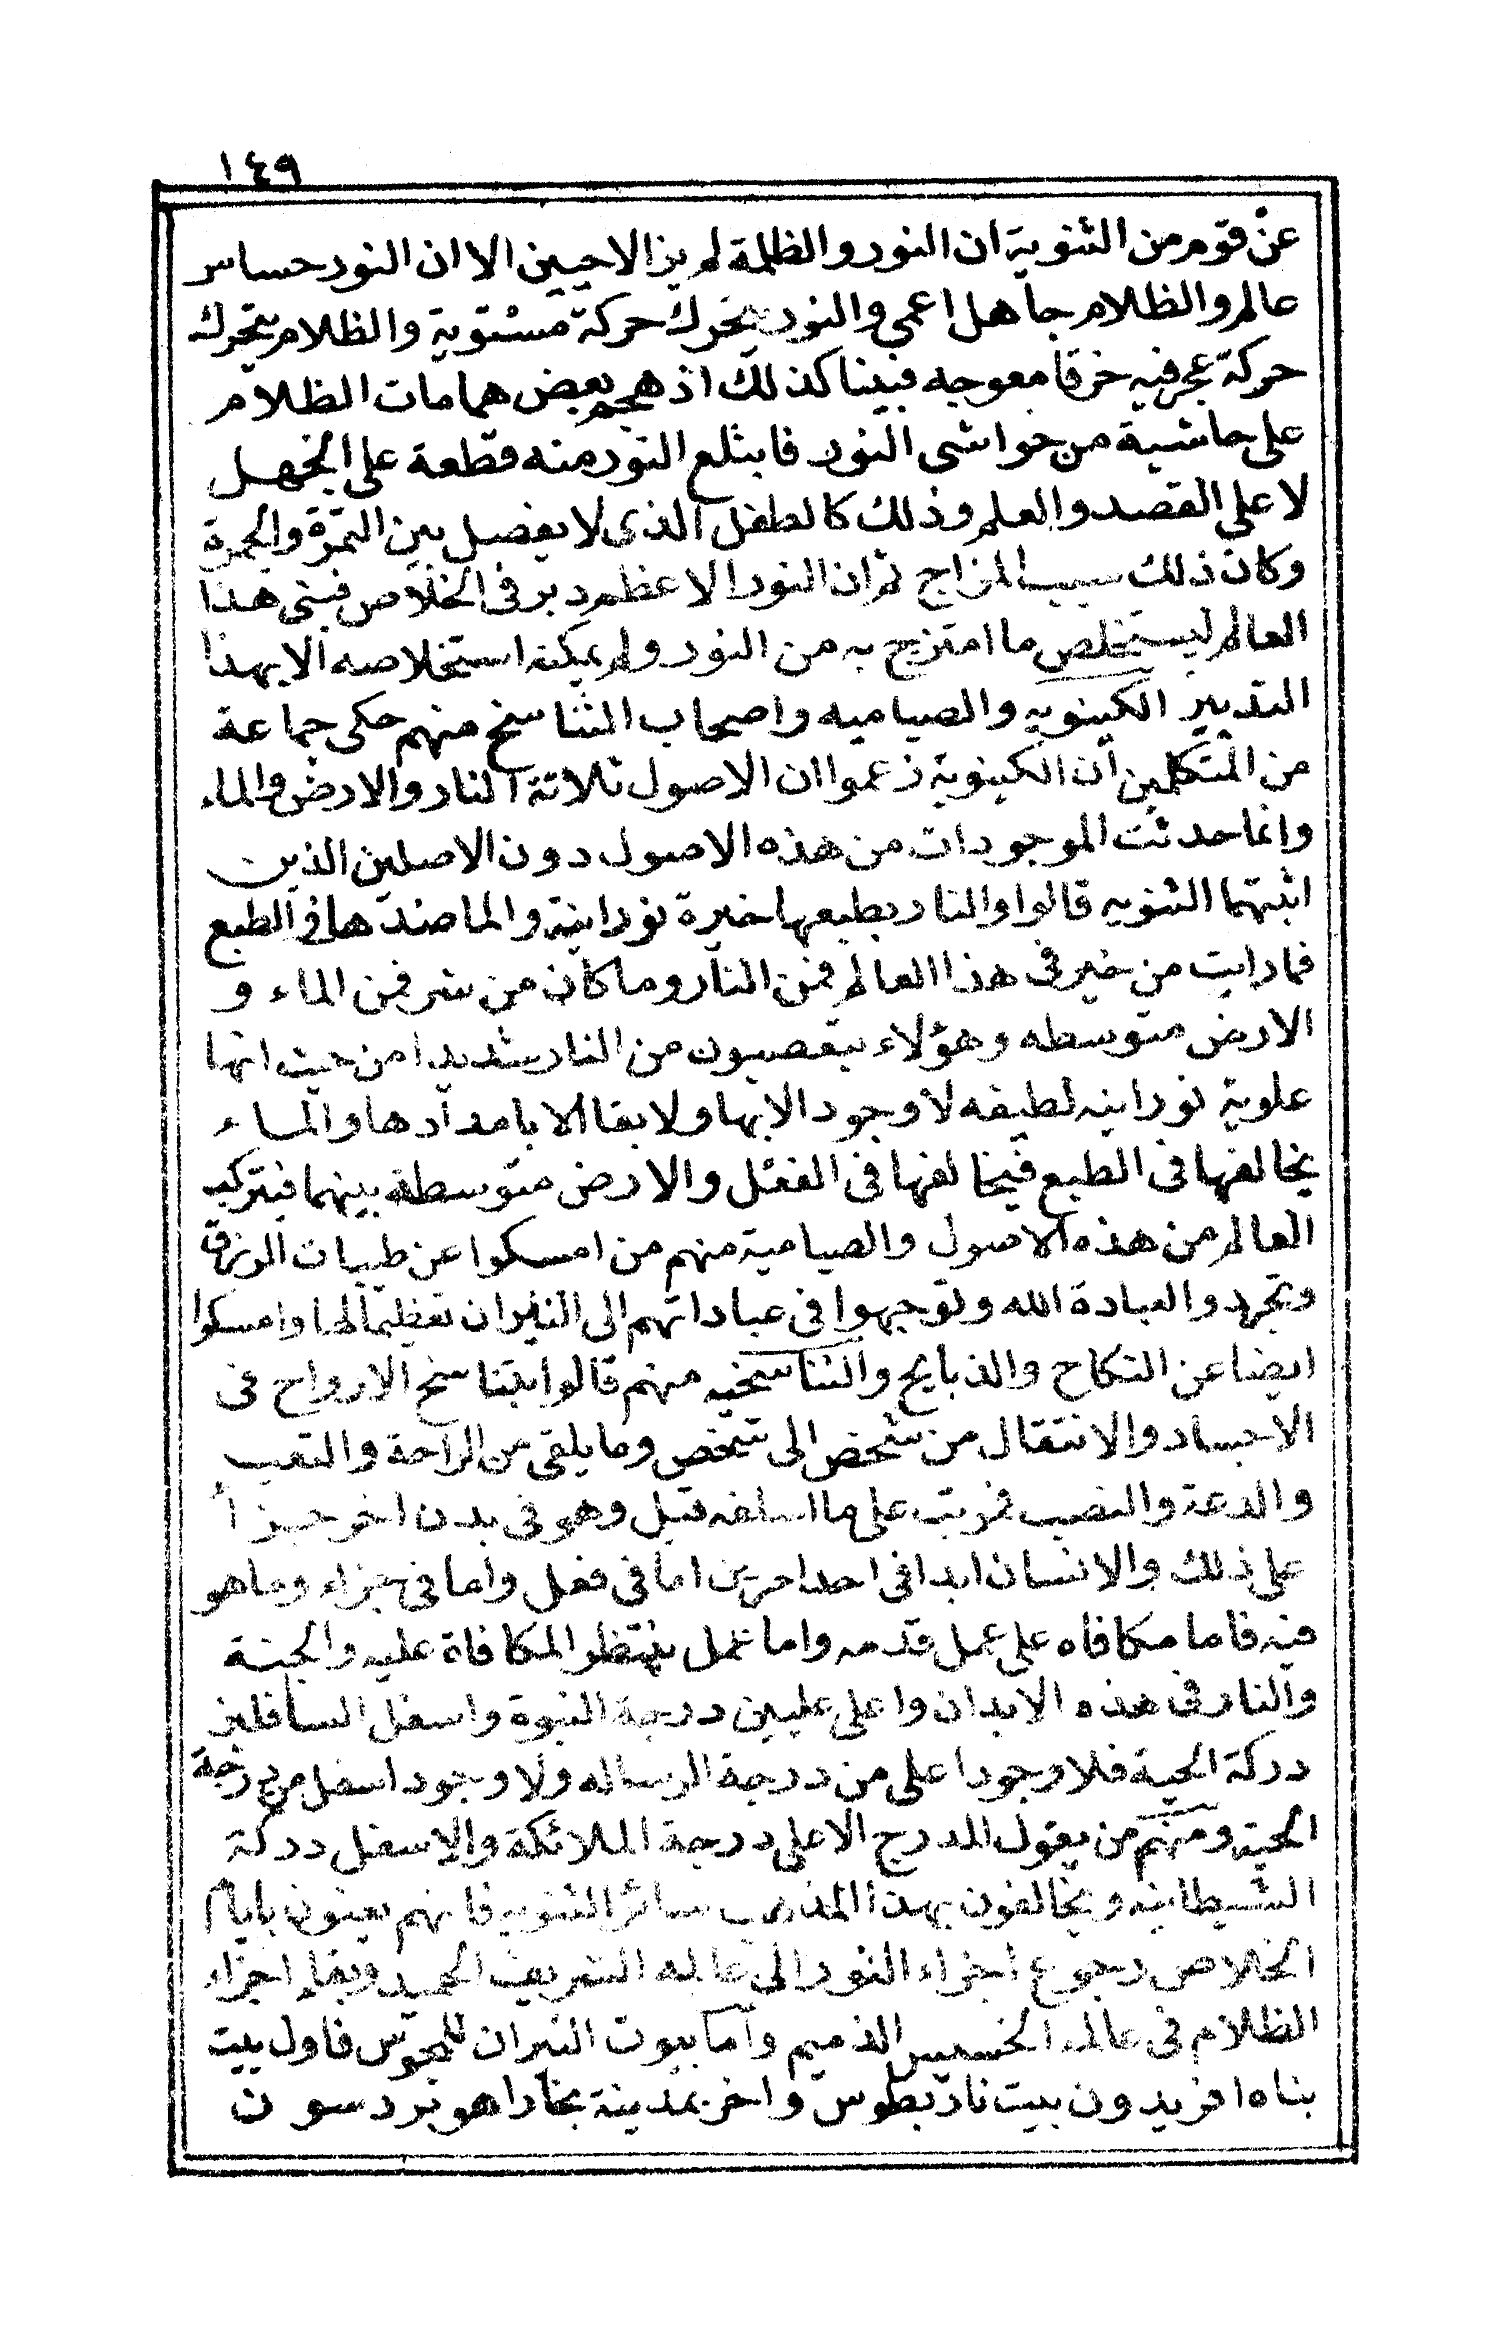 ١٤٩
عن قوم من الثنوية ان النور والظلمة لم يزالا حيين الا ان النور حساس
عالم والظلام جاهل اعمى والنور يتحرك حركة مستوية والظلام يتحرك
حركة عجرفيه خرقا معوجه فبينا كذلك اذ هجم بعض همامات الظلام
على حاشية من حواشى النور فابتلع النور منه قطعة على الجهل
لا على القصد والعلم وذلك كالطفل الذى لا يفصل بين التمرة والجمرة
وكان ذلك سبب المزاج ثم ان النور الاعظم دبر فى الخلاص فبنى هذا
العالم ليستخلص ما امتزج به من النور ولم يمكنه استخلاصه الا بهذا
التدبير الكينويه والصياميه واصحاب التناسخ منهم حكى جماعة
من المتكلمين ان الكينوية زعموا ان الاصول ثلاثة النار والارض والماء
وانما حدثت الموجودات من هذه الاصول دون الاصلين الذين
اثبتهما الثنويه قالوا والنار بطبعها خيرة نورانية والما ضدها فى الطبع
فما رايت من خير فى هذا العالم فمن النار وما كان من شر فمن الماء و
الارض متوسطه وهؤلاء يتعصبون من النار شديدا من حيث انها
علوية نورانيه لطيفه لا وجود الا بها ولا بقا الا بامدادها والماء
يخالفها فى الطبع فيخالفها فى الفعل والارض متوسطة بينهما فيتركب
العالم من هذه الاصول والصيامية منهم من امسكوا عن طيبات الرزق
وتجردوا لعبادة الله وتوجهوا فى عباداتهم الى النيران تعظيما لها وامسكوا
ايضا عن النكاح والذبايح والتناسخيه منهم قالوا بتناسخ الارواح فى
الاجساد والانتقال من شخص الى شخص وما يلقى من الراحة والتعب
والدعة والنصب فمرتب على ما اسلفه قبل وهو فى بدن اخر جزأ
على ذلك والانسان ابدا فى احد امرين اما فى فعل واما فى جزاء وما هو
فيه فاما مكافاه على عمل قدمه واما عمل ينتظر المكافاة عليه والجنة
والنار فى هذه الابدان واعلى عليين درجة النبوة واسفل السافلين
دركة الحية فلا وجود اعلى من درجة الرساله ولا وجود اسفل من درجة
الحية ومنهم من يقول المدرج الاعلى درجة الملائكة والاسفل دركة
الشيطانيه ويخالفون بهذا المذهب سائر الثنويه فانهم يعنون بايام
الخلاص رجوع اجزاء النور الى عالمه الشريف الحميد وبقاء اجزاء
الظلام فى عالمه الخسيس الذميم واما بيوت النيران للمجوس فاول بيت
بناه افريدون بيت نار بطوس واخر بمدينة بخارا هو بردسون